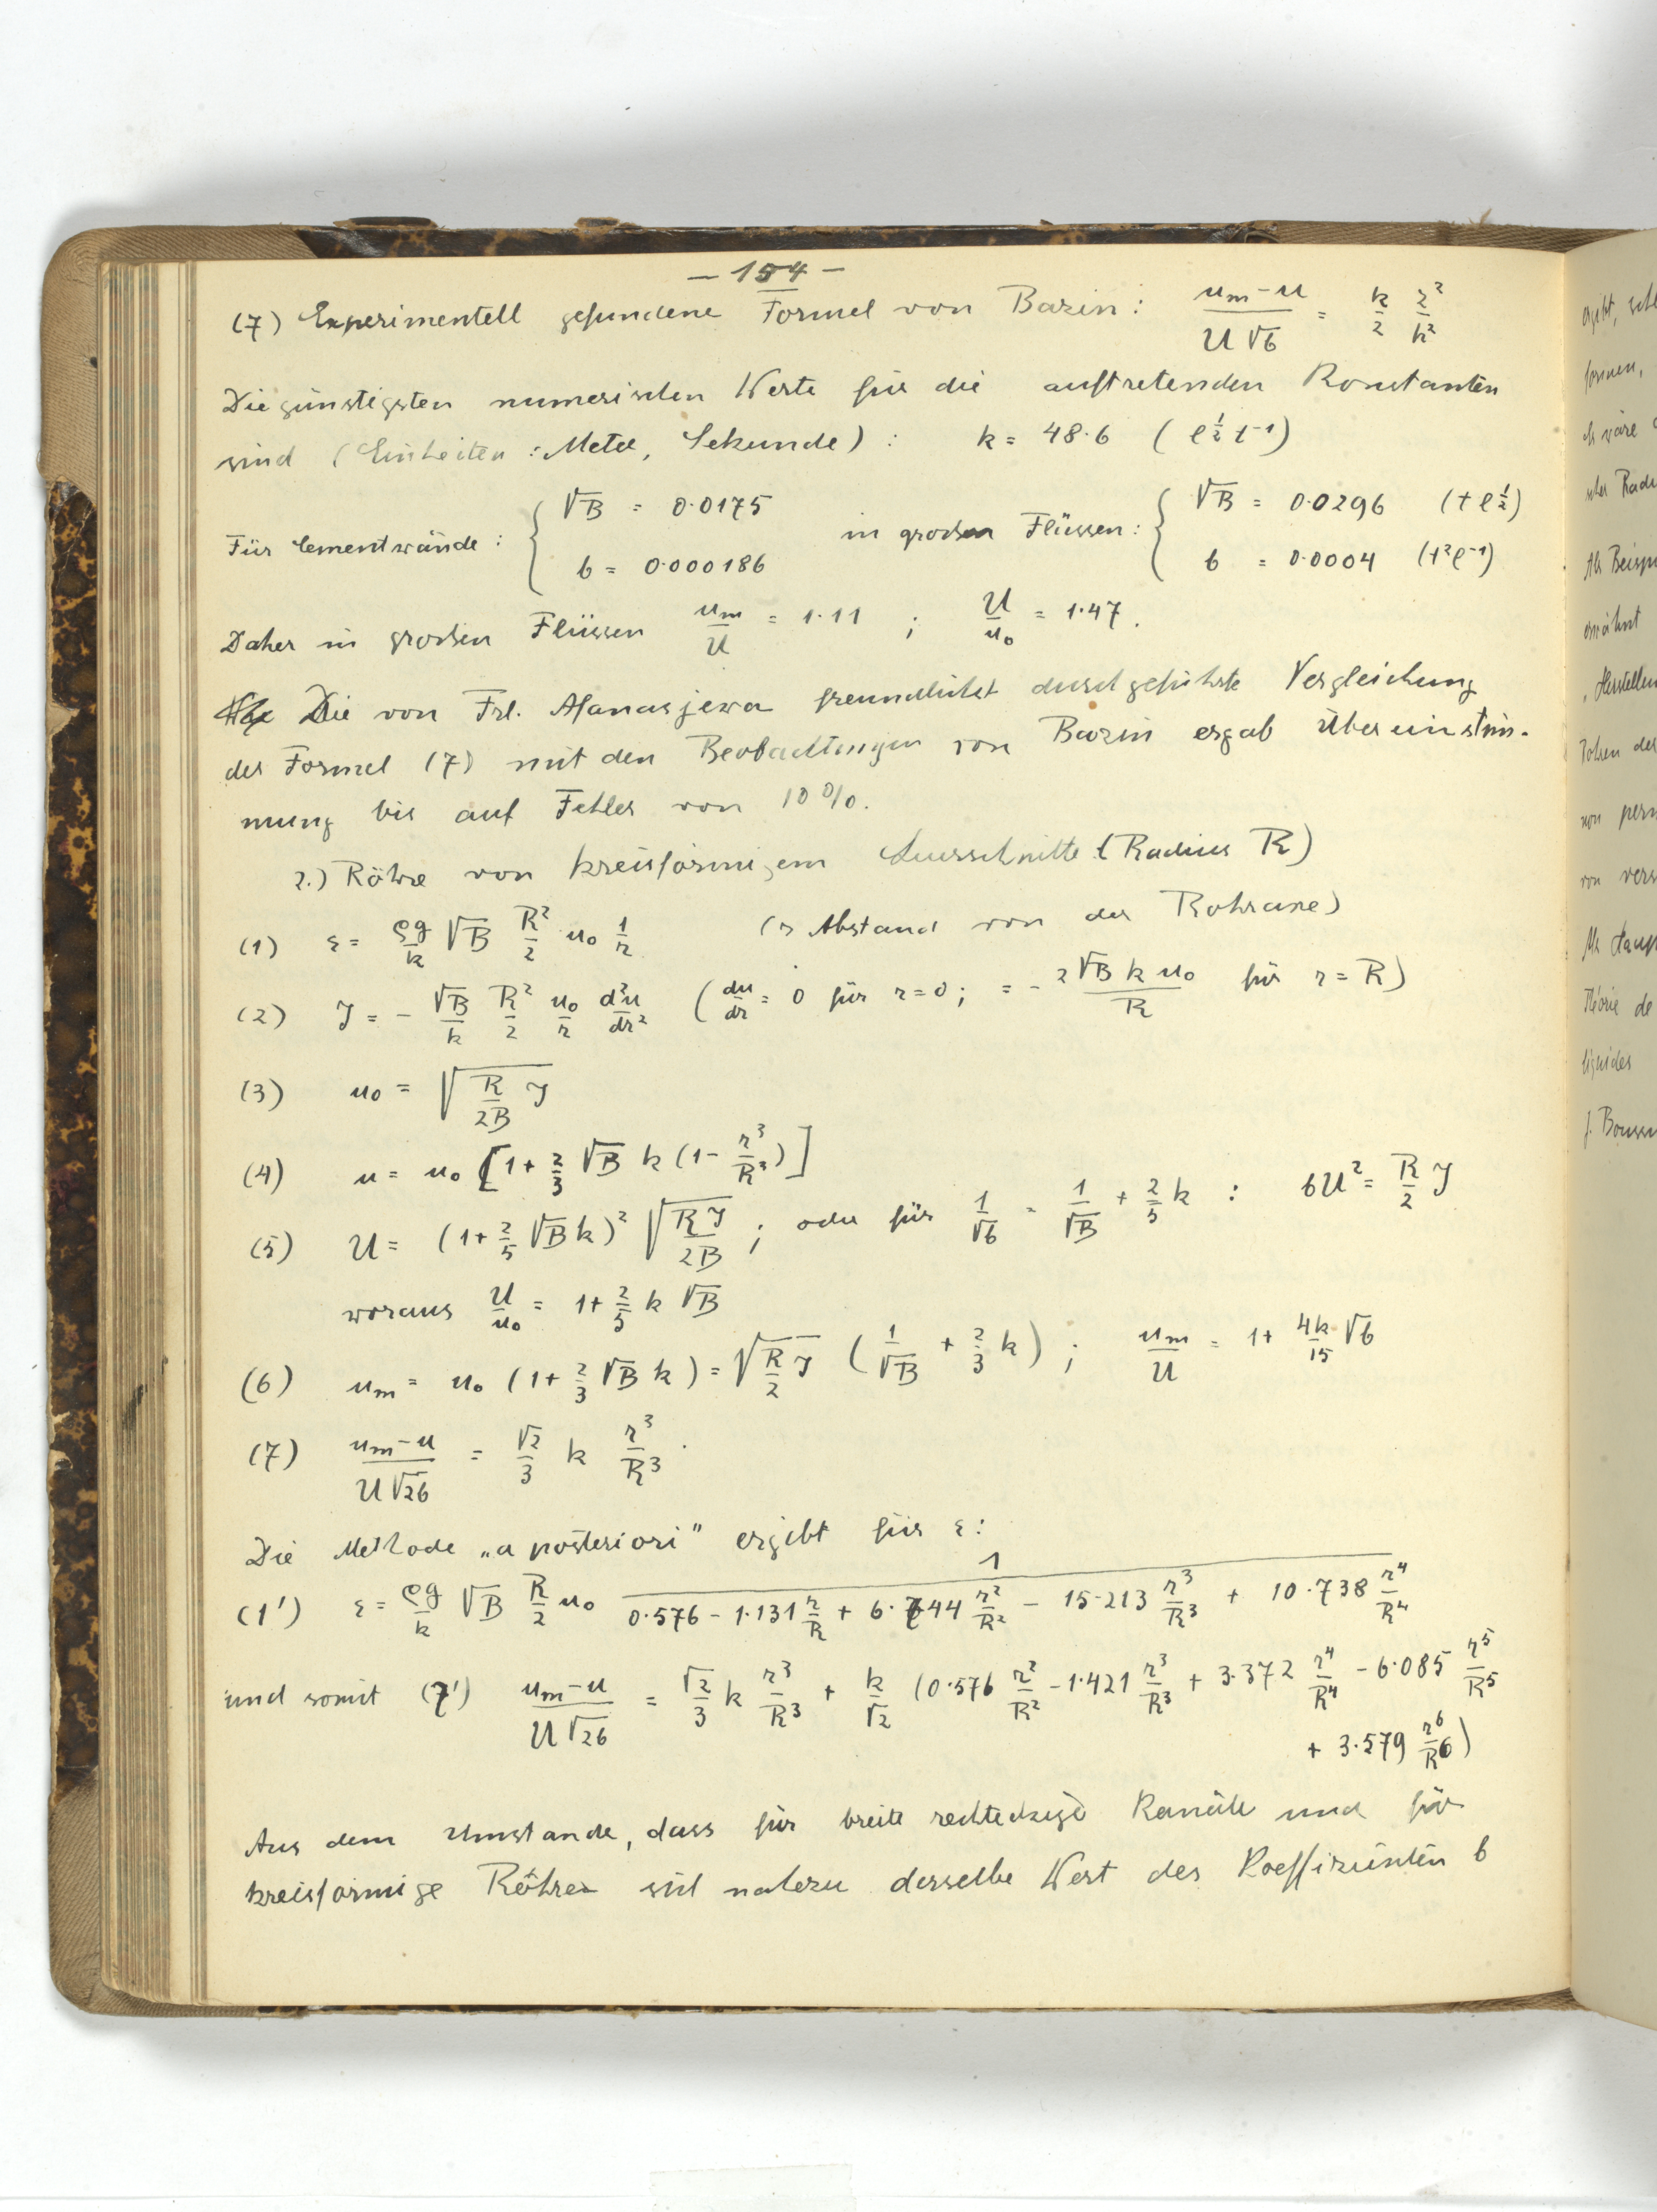 – 154 –
(7) Experimentell gefundene Formel von Bazin: (um – u)/(U √b) = k/2 z²/h²
Die günstigsten numerischen Werte für die auftretenden Konstanten
sind (Einheiten: Meter, Sekunde): k = 48·6 (l^½ t⁻¹)
Für Cementwände: { √B = 0·0175 in grossen Flüssen: { √B = 0·0296 (t l^½)
b = 0·000186 b = 0·0004 (t² l⁻¹)
Daher in grossen Flüssen um/U = 1·11 ; U/u₀ = 1·47.
Die von Frl. Afanasjewa freundlichst durchgeführte Vergleichung
der Formel (7) mit den Beobachtungen von Bazin ergab Übereinstim-
mung bis auf Fehler von 10%.
2.) Röhre von kreisförmigem Querschnitte (Radius R)
(1) ε = ρg/k √B R²/2 u₀ 1/r (r Abstand von der Rohraxe)
(2) J = – √B/k R²/2 u₀/r d²u/dr² (du/dr = 0 für r = 0; = – 2√B k u₀/R für r = R)
(3) u₀ = √(R/2B J)
(4) u = u₀ [1 + 2/3 √B k (1 – r³/R³)]
(5) U = (1 + 2/5 √B k)² √(RJ/2B) ; oder für 1/√b = 1/√B + 2/5 k : bU² = R/2 J
woraus U/u₀ = 1 + 2/5 k √B
(6) um = u₀ (1 + 2/3 √B k) = √(R/2 J) (1/√B + 2/3 k) ; um/U = 1 + 4k/15 √b
(7) (um – u)/(U √2b) = √2/3 k r³/R³ .
Die Methode „a posteriori" ergibt für ε:
(1') ε = ρg/k √B R/2 u₀ 1/(0·576 – 1·131 r/R + 6·744 r²/R² – 15·213 r³/R³ + 10·738 r⁴/R⁴)
und somit (7') (um – u)/(U √2b) = √2/3 k r³/R³ + k/√2 (0·576 r²/R² – 1·421 r³/R³ + 3·372 r⁴/R⁴ – 6·085 r⁵/R⁵
+ 3·579 r⁶/R⁶)
Aus dem Umstande, dass für breite rechteckige Kanäle und für
kreisförmige Röhren sich nahezu derselbe Wert des Koeffizienten b